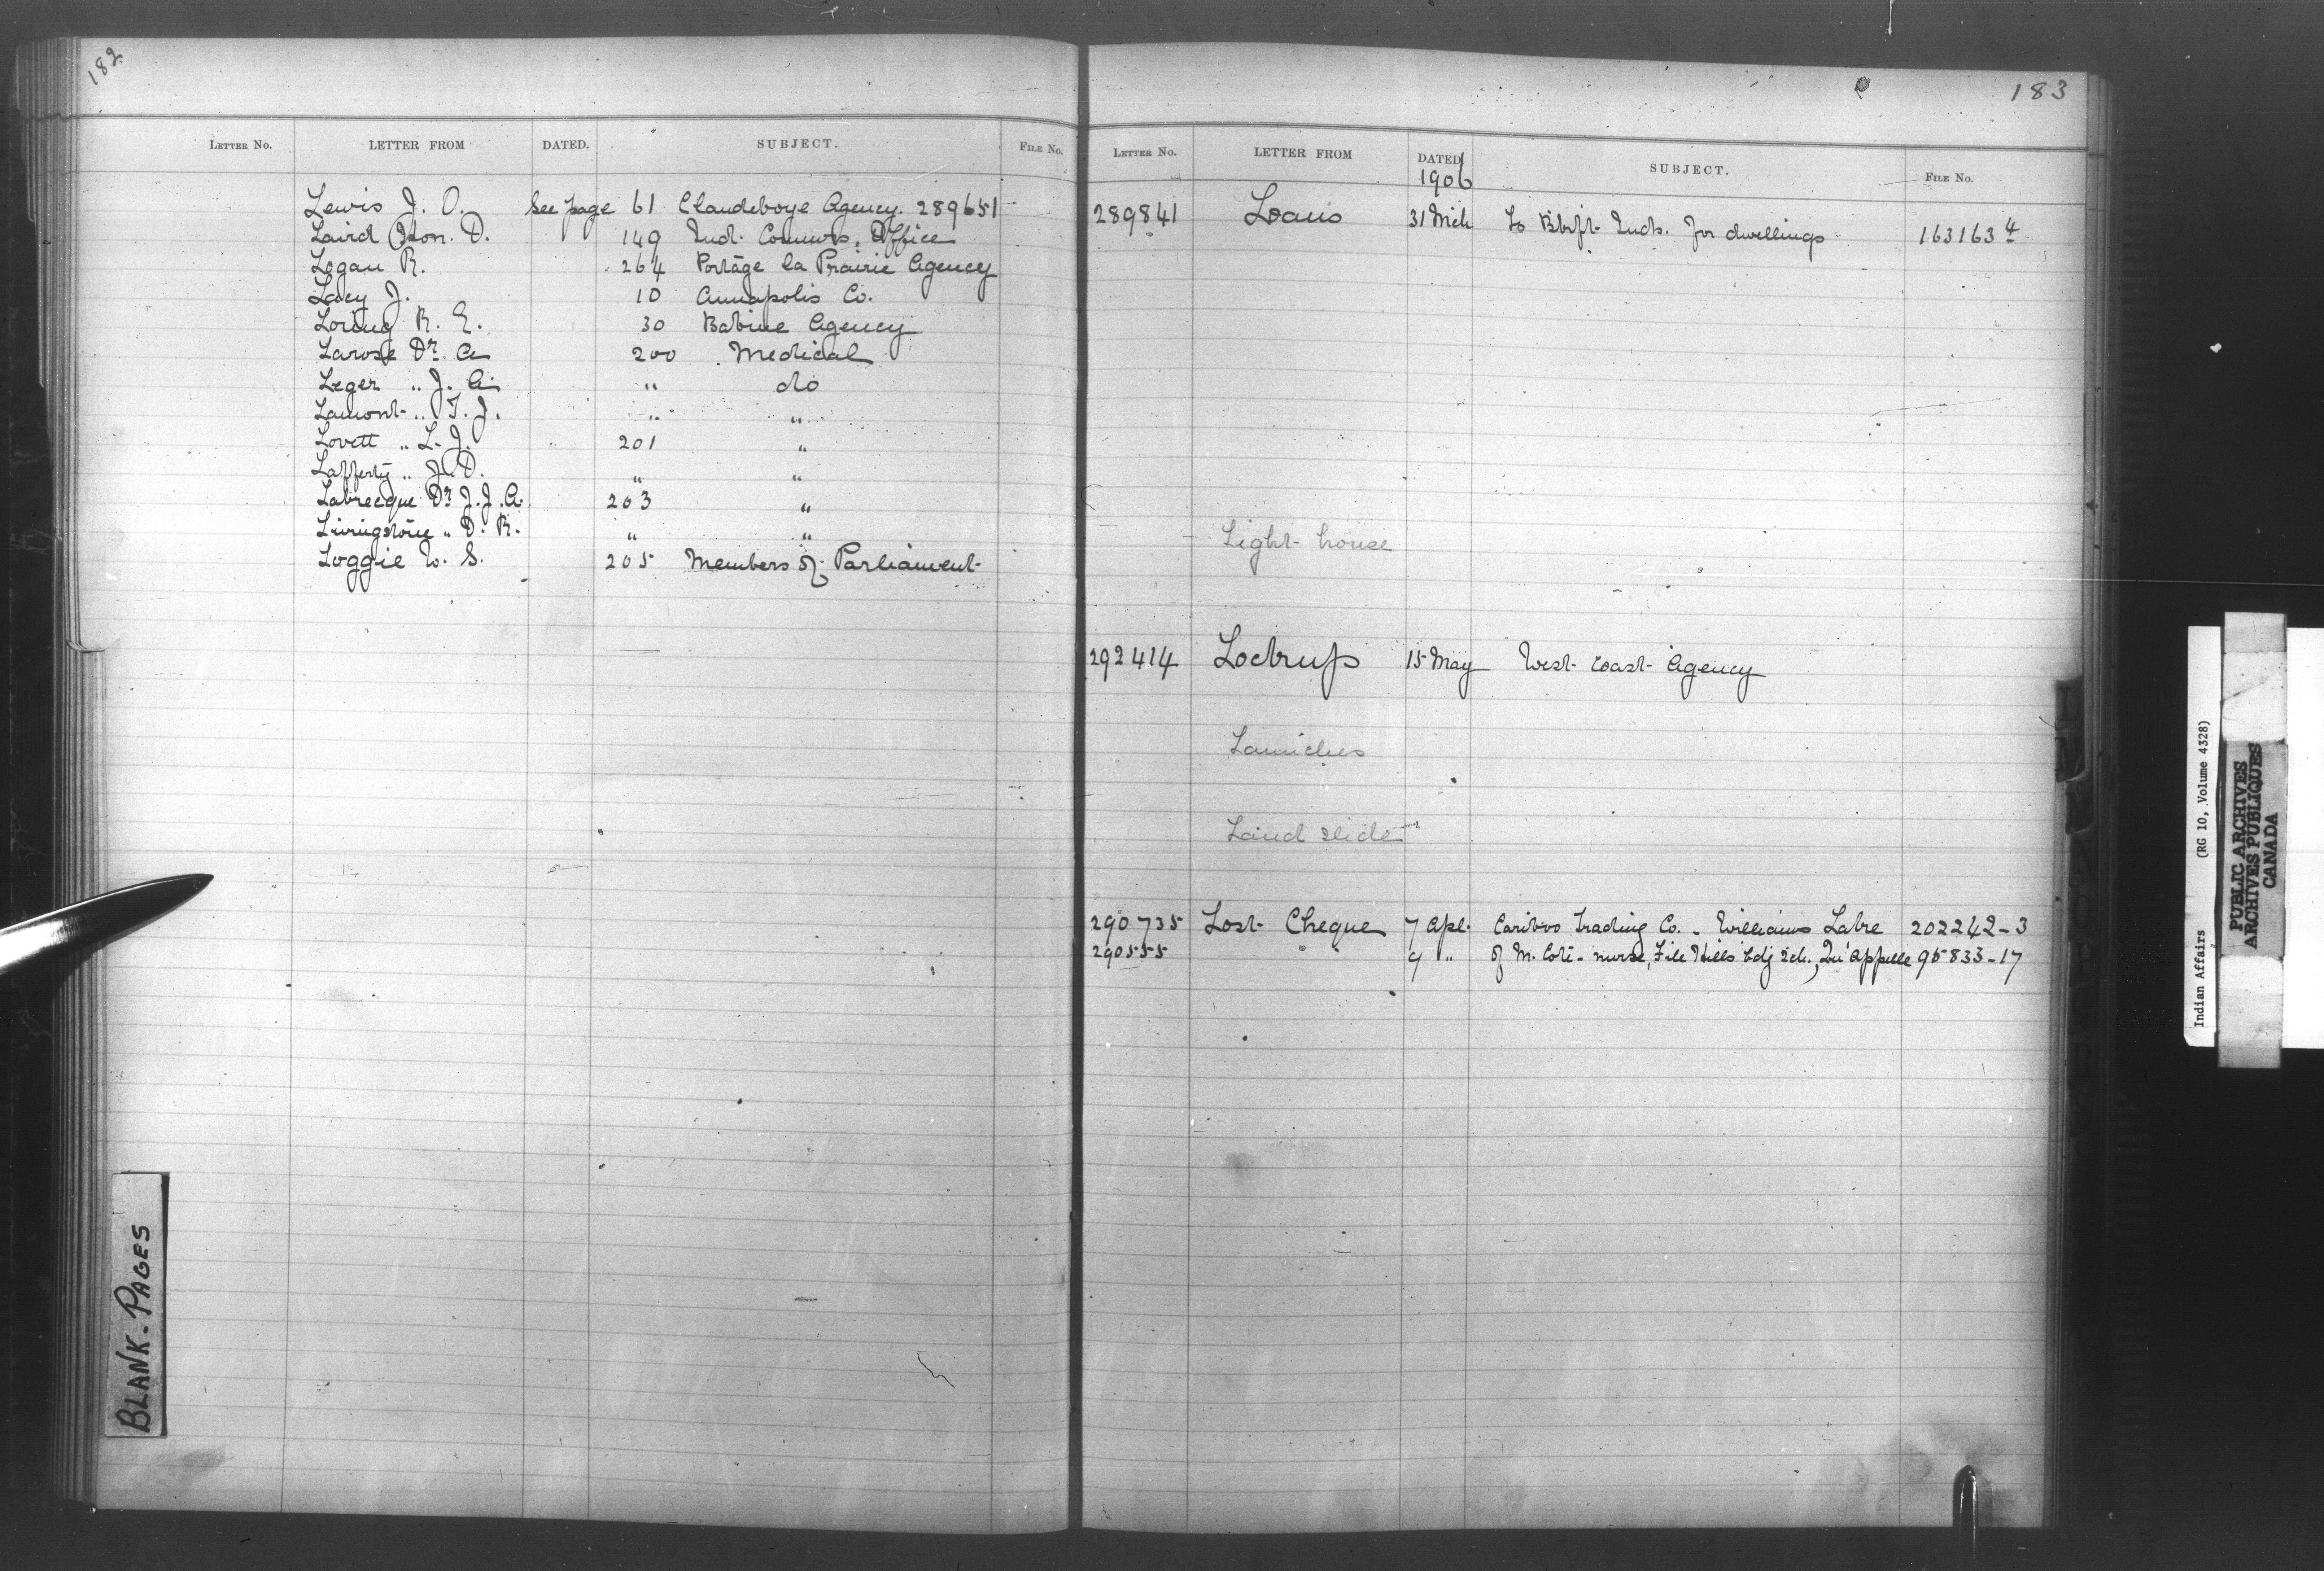 182
LETTER NO. LETTER FROM DATED. SUBJECT. FILE NO.
Lewis J. O. See page 61 Clandeboye Agency. 289651
Laird Hon. D. 149 Ind. Commrs. Office
Logan R. 264 Portage la Prairie Agency
Lacy J. 10 Annapolis Co.
Loring R. E. 30 Babine Agency
Larose Dr. A 200 Medical
Leger " J. A. " do
Lamont " T. J. " "
Lovett " L. J. 201 "
Lafferty " J. D. " "
Labrecque Dr J. J. A. 203 "
Livingstone " D. R. " "
Loggie W. S. 205 Members of Parliament
BLANK-PAGES
183
LETTER NO. LETTER FROM DATED 1906 SUBJECT. FILE NO.
289841 Loans 31 Mch To Inds. for dwellings 163163-4
Light house
292414 Loctrup 15 May West Coast Agency
Launches
Land slide
290735 Lost Cheque 7 Apl. Cariboo Trading Co. - Williams Lake 202242-3
290555 " " 9 " of M. Coté - nurse, File Hills Bdg Sch., Qu'Appelle 95833-17
Indian Affairs (RG 10, Volume 4328)
PUBLIC ARCHIVES
ARCHIVES PUBLIQUES
CANADA